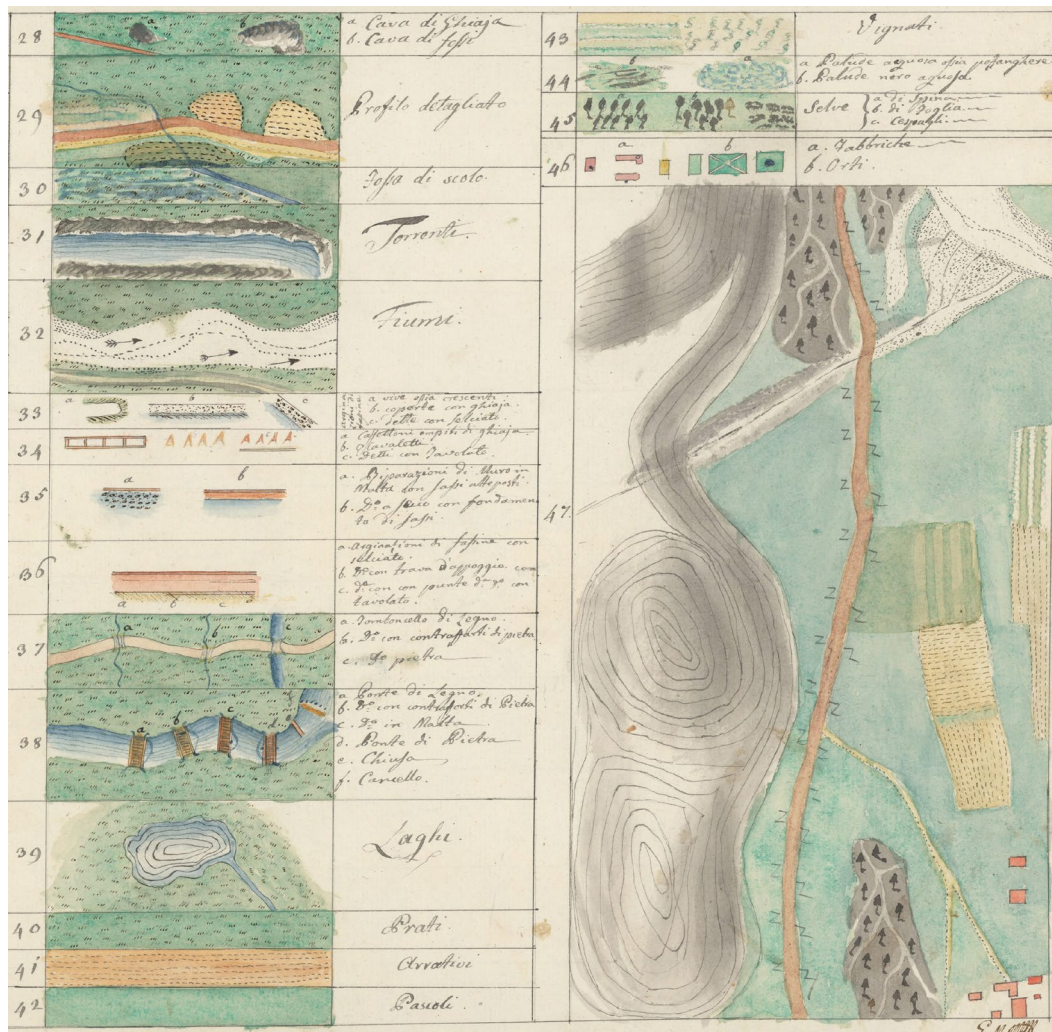 28
a
b
a. Cava di Ghiaja
b. Cava di fossi
29
Profilo detagliato
30
Fossa di scolo.
31
Torrenti.
32
Fiumi.
33
a
b
c
a vive ossia crescenti
b. coperte con ghiaja.
c. dette con selciato.
34
a b c
a Cassettoni empiti di ghiaja
b. Cavalette
c. Dette con Tavolato.
35
a
b
a. Riparazioni di Muro in
Malta con sassi atteposti
b. Do a secco con fondamen
to di sassi.
36
a b c
a. Arginationi di fassine con
selciate.
b. Do con trava d'appoggio
c. do con
tavolato.
37
a
b
c
a. Tomboncello di Legno.
b. Do con contrafforti di pietra
c. Do pietra
38
a
b
c
d
e
a. Ponte di Legno.
b. Do con contrafforti di Pietra
c. Do in Malta
d. Ponte di Pietra
e. Chiusa
f. Cancello.
39
Laghi.
40
Prati.
41
Arrativi
42
Pascoli.
43
Vignati.
44
b
a
a Palude acquosa ossia possanghere
b. Palude nero aquosa
45
Selve
a. di Spino
b. di Foglia
c. Cespugli
46
a
b
a. Fabbriche
b. Orti.
47.